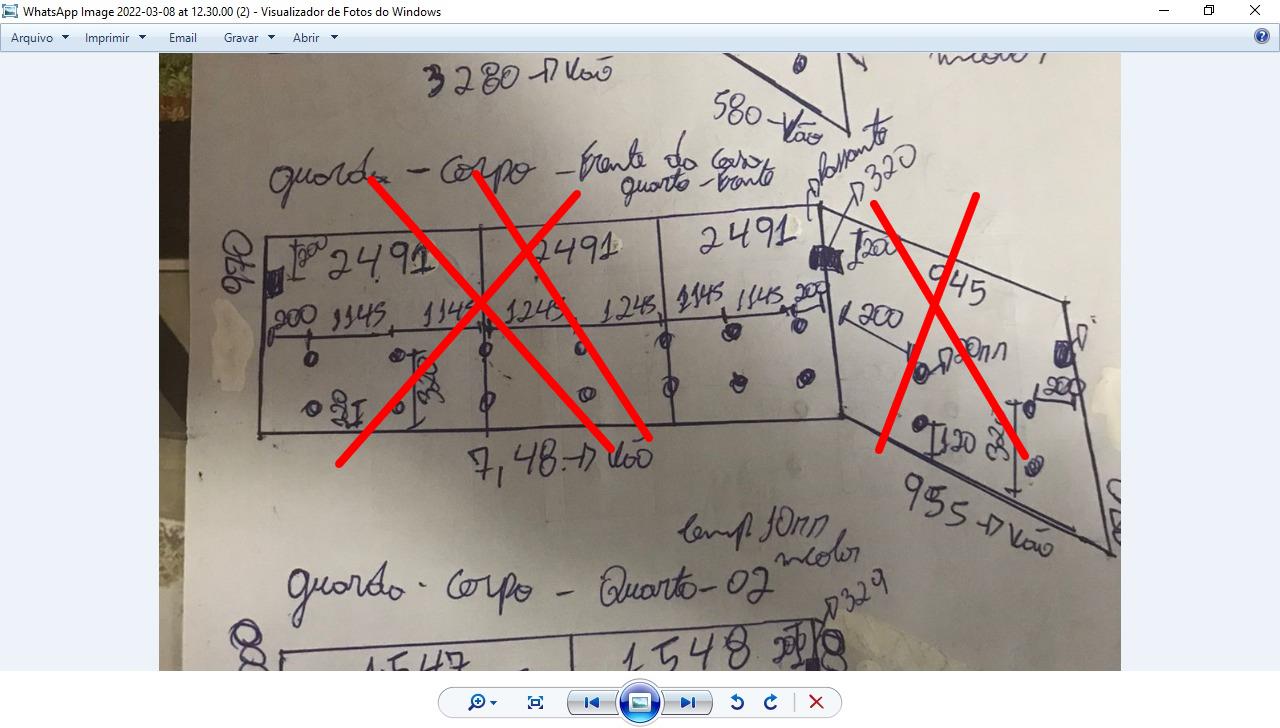 WhatsApp Image 2022-03-08 at 12.30.00 (2) - Visualizador de Fotos do Windows
Arquivo Imprimir Email Gravar Abrir
3280 Vão
580 - Vão
Passante
320
guarda - Corpo - Frente da Casa
quarto - Frente
970
200
2491
2491
2491
200
945
200 1145 1145 1245 1245 1145 1145 200
200
120
320
200
120
320
7,48 Vão
955 Vão
temp 10mm
incolor
guarda - Corpo - Quarto - 02
329
1547
1548